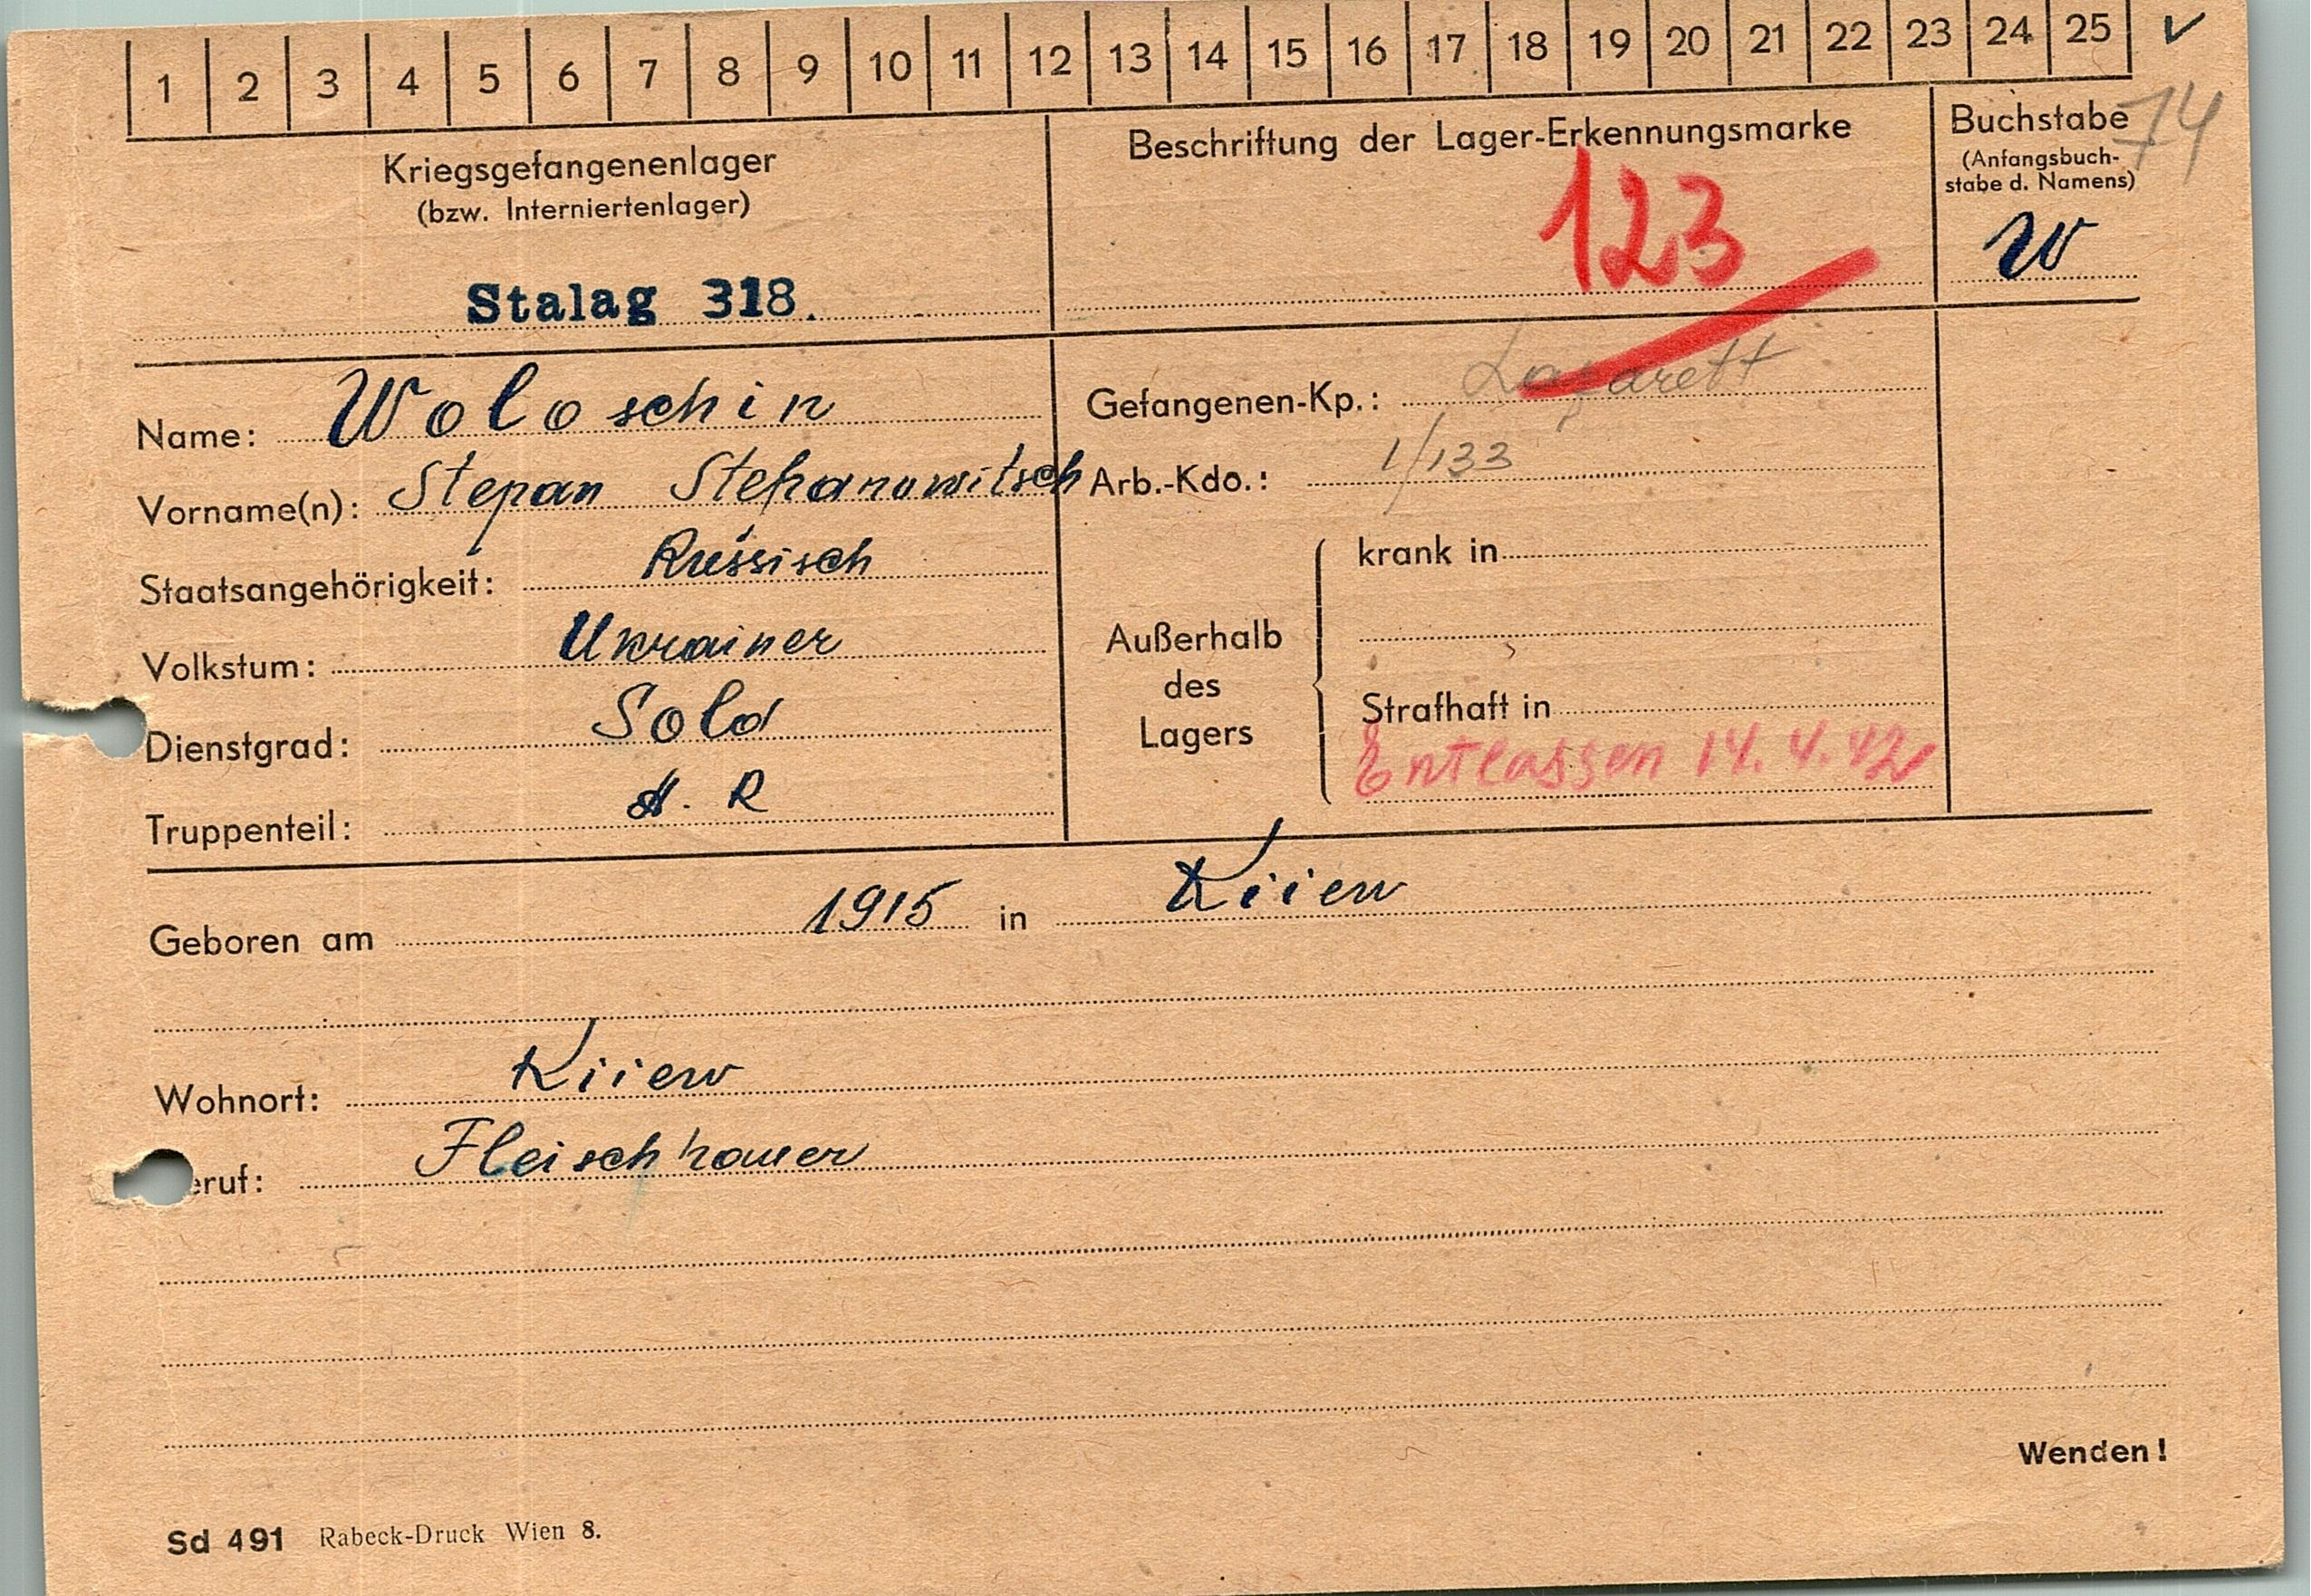 1 2 3 4 5 6 7 8 9 10 11 12 13 14 15 16 17 18 19 20 21 22 23 24 25
74
Kriegsgefangenenlager
(bzw. Interniertenlager)
Stalag 318.
Beschriftung der Lager-Erkennungsmarke
123
Buchstabe
(Anfangsbuch-
stabe d. Namens)
W
Name: Woloschin
Vorname(n): Stepan Stefanowitsch
Staatsangehörigkeit: Russisch
Volkstum: Ukrainer
Dienstgrad: Sold
Truppenteil: A. R
Gefangenen-Kp.: Lazarett
Arb.-Kdo.: 1/133
Außerhalb
des
Lagers
krank in
Strafhaft in
Entlassen 14. 4. 42
Geboren am 1915 in Kiiew
Wohnort: Kiiew
eruf: Fleischhauer
Wenden!
Sd 491 Rabeck-Druck Wien 8.